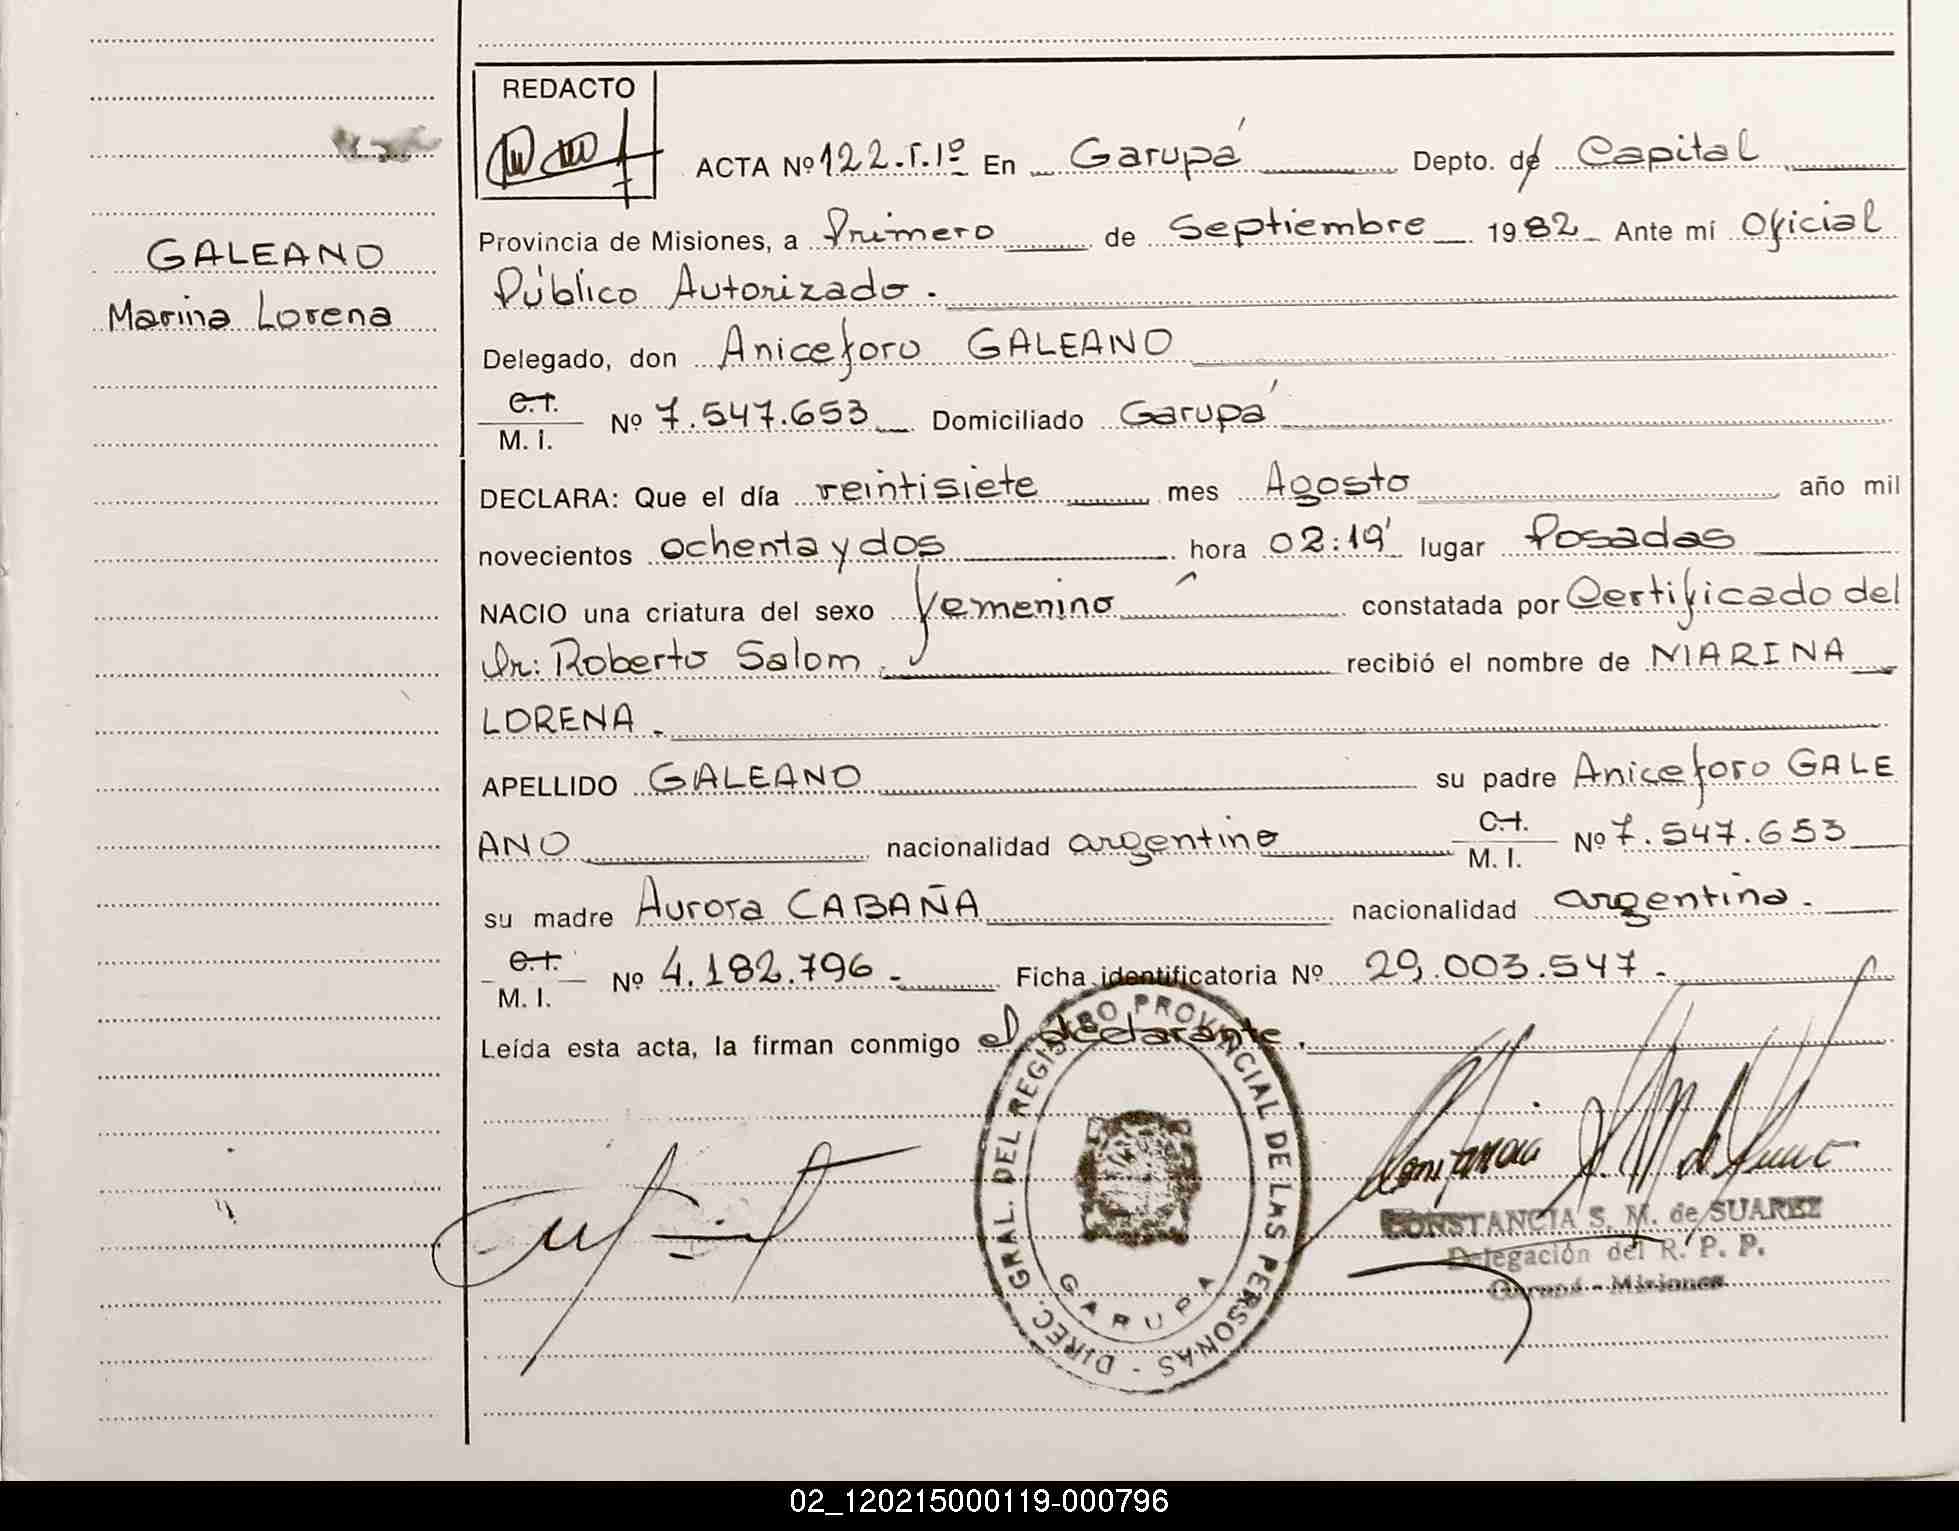 REDACTO
ACTA Nº 122.T.1º En Garupá Depto. de Capital
GALEANO
Marina Lorena
Provincia de Misiones, a Primero de Septiembre 1982 Ante mí Oficial
Público Autorizado.
Delegado, don Aniceforo GALEANO
C.I.
M. I. Nº 7.547.653 Domiciliado Garupá
DECLARA: Que el día veintisiete mes Agosto año mil
novecientos ochenta y dos hora 02:19' lugar Posadas
NACIO una criatura del sexo femenino constatada por Certificado del
Dr: Roberto Salom. recibió el nombre de MARINA
LORENA.
APELLIDO GALEANO su padre Aniceforo GALE
ANO nacionalidad argentino C.I. M. I. Nº 7.547.653
su madre Aurora CABAÑA nacionalidad argentina.
C.I.
M. I. Nº 4.182.796 - Ficha identificatoria Nº 29.003.547 -
Leída esta acta, la firman conmigo el declarante.
DIREC. GRAL. DEL REGISTRO PROVINCIAL DE LAS PERSONAS -
GARUPA
CONSTANCIA S. M. de SUAREZ
Delegación del R. P. P.
Garupá - Misiones
02_120215000119-000796